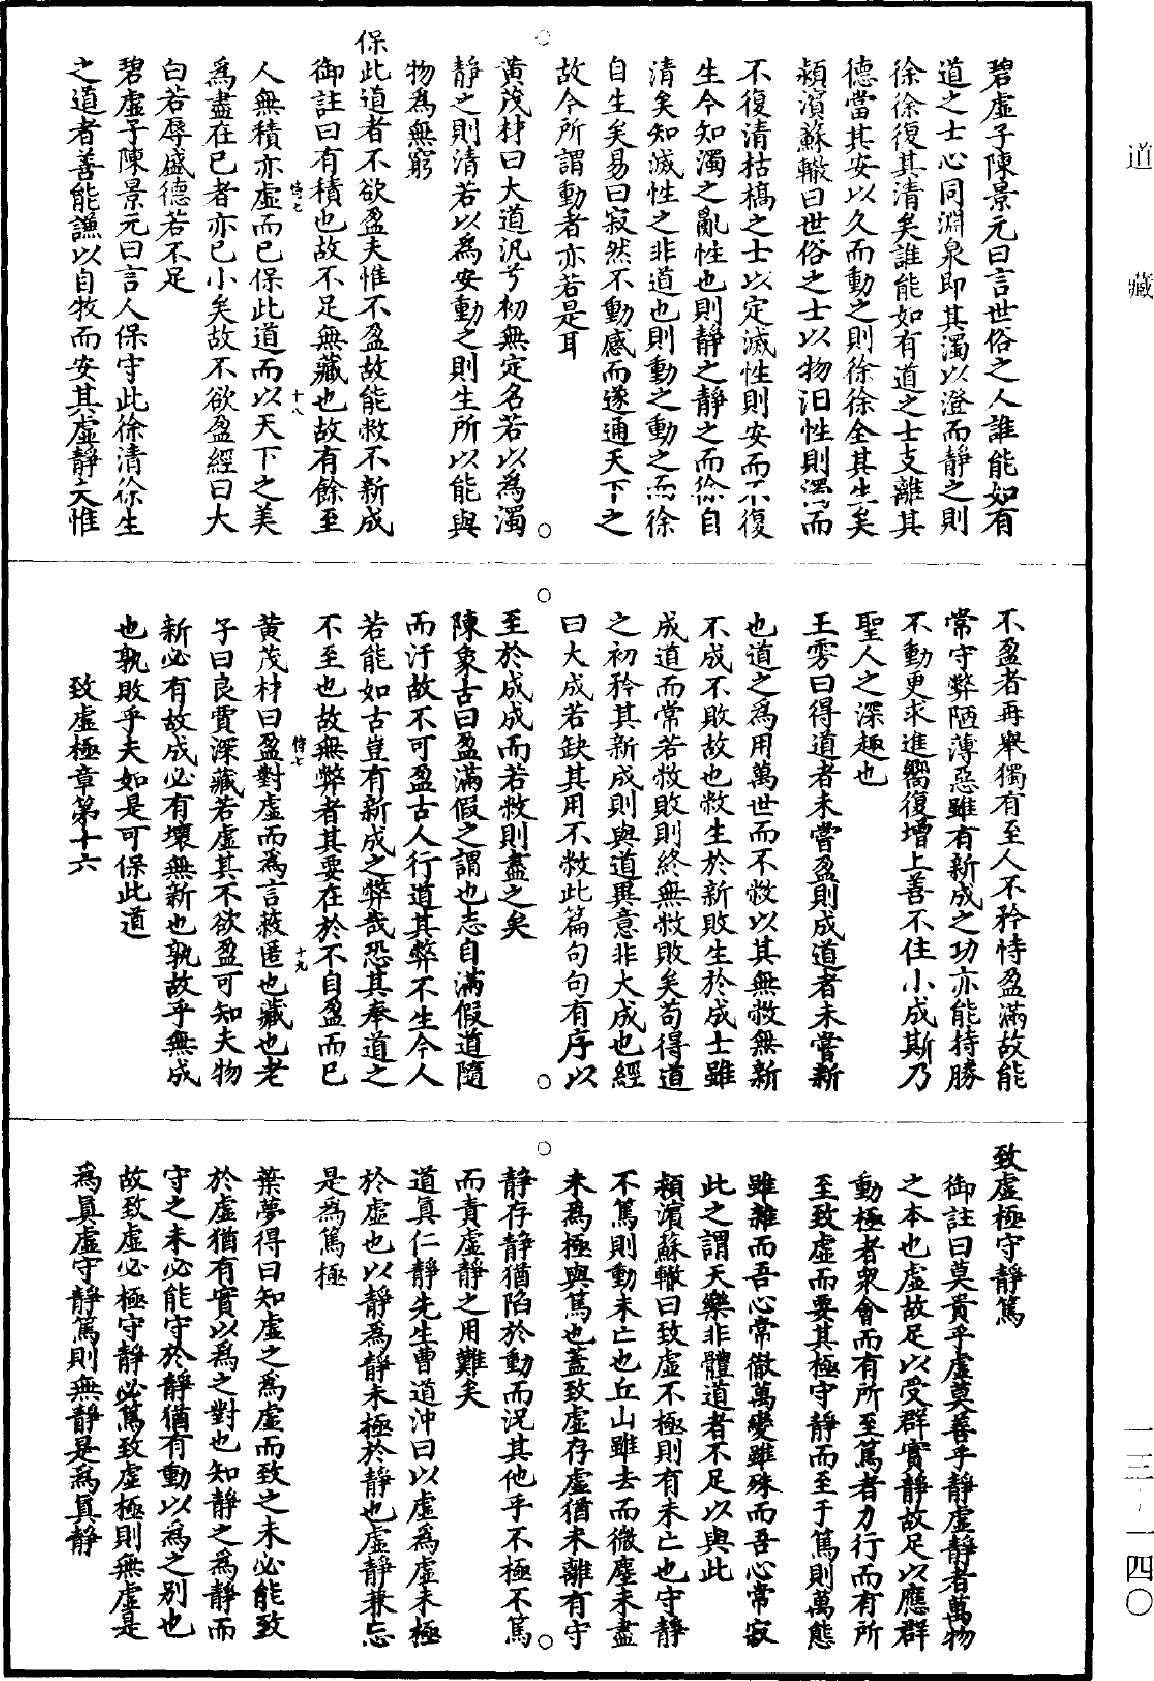 道藏
碧虛子陳景元曰言世俗之人誰能如有
道之士心同淵泉即其濁以澄而靜之則
徐徐復其清矣誰能如有道之士支離其
德當其安以久而動之則徐徐全其生矣
潁濱蘇轍曰世俗之士以物汩性則濁而
不復清枯槁之士以定滅性則安而不復
生今知濁之亂性也則靜之靜之而徐自
清矣知滅性之非道也則動之動之而徐
自生矣易曰寂然不動感而遂通天下之
故今所謂動者亦若是耳
黃茂材曰大道汎兮初無定名若以為濁
靜之則清若以為安動之則生所以能與
物為無窮
保此道者不欲盈夫惟不盈故能敝不新成
御註曰有積也故不足無藏也故有餘至
人無積亦虛而已保此道而以天下之美
恃七 十八
為盡在已者亦已小矣故不欲盈經曰大
白若辱盛德若不足
碧虛子陳景元曰言人保守此徐清徐生
之道者善能謙以自牧而安其虛靜夫惟
不盈者再舉獨有至人不矜恃盈滿故能
常守弊陋薄惡雖有新成之功亦能持勝
不動更求進嚮復增上善不住小成斯乃
聖人之深趣也
王雱曰得道者未嘗盈則成道者未嘗新
也道之為用萬世而不敝以其無敝無新
不成不敗故也敝生於新敗生於成士雖
成道而常若敝敗則終無敝敗矣苟得道
之初矜其新成則與道異意非大成也經
曰大成若缺其用不敝此篇句句有序以
至於成成而若敝則盡之矣
陳象古曰盈滿假之謂也志自滿假道隨
而汙故不可盈古人行道其弊不生今人
若能如古豈有新成之弊哉恐其奉道之
不至也故無弊者其要在於不自盈而已
黃茂材曰盈對虛而為言蔽匿也藏也老
恃七 十九
子曰良賈深藏若虛其不欲盈可知夫物
新必有故成必有壞無新也孰故乎無成
也孰敗乎夫如是可保此道
致虛極章第十六
致虛極守靜篤
御註曰莫貴乎虛莫善乎靜虛靜者萬物
之本也虛故足以受群實靜故足以應群
動極者衆會而有所至篤者力行而有所
至致虛而要其極守靜而至于篤則萬態
雖雜而吾心常徹萬變雖殊而吾心常寂
此之謂天樂非體道者不足以與此
潁濱蘇轍曰致虛不極則有未亡也守靜
不篤則動未亡也丘山雖去而微塵未盡
未為極與篤也蓋致虛存虛猶未離有守
靜存靜猶陷於動而況其他乎不極不篤
而責虛靜之用難矣
道真仁靜先生曹道沖曰以虛為虛未極
於虛也以靜為靜未極於靜也虛靜兼忘
是為篤極
葉夢得曰知虛之為虛而致之未必能致
於虛猶有實以為之對也知靜之為靜而
守之未必能守於靜猶有動以為之別也
故致虛必極守靜必篤致虛極則無虛是
為真虛守靜篤則無靜是為真靜
一三-一四〇